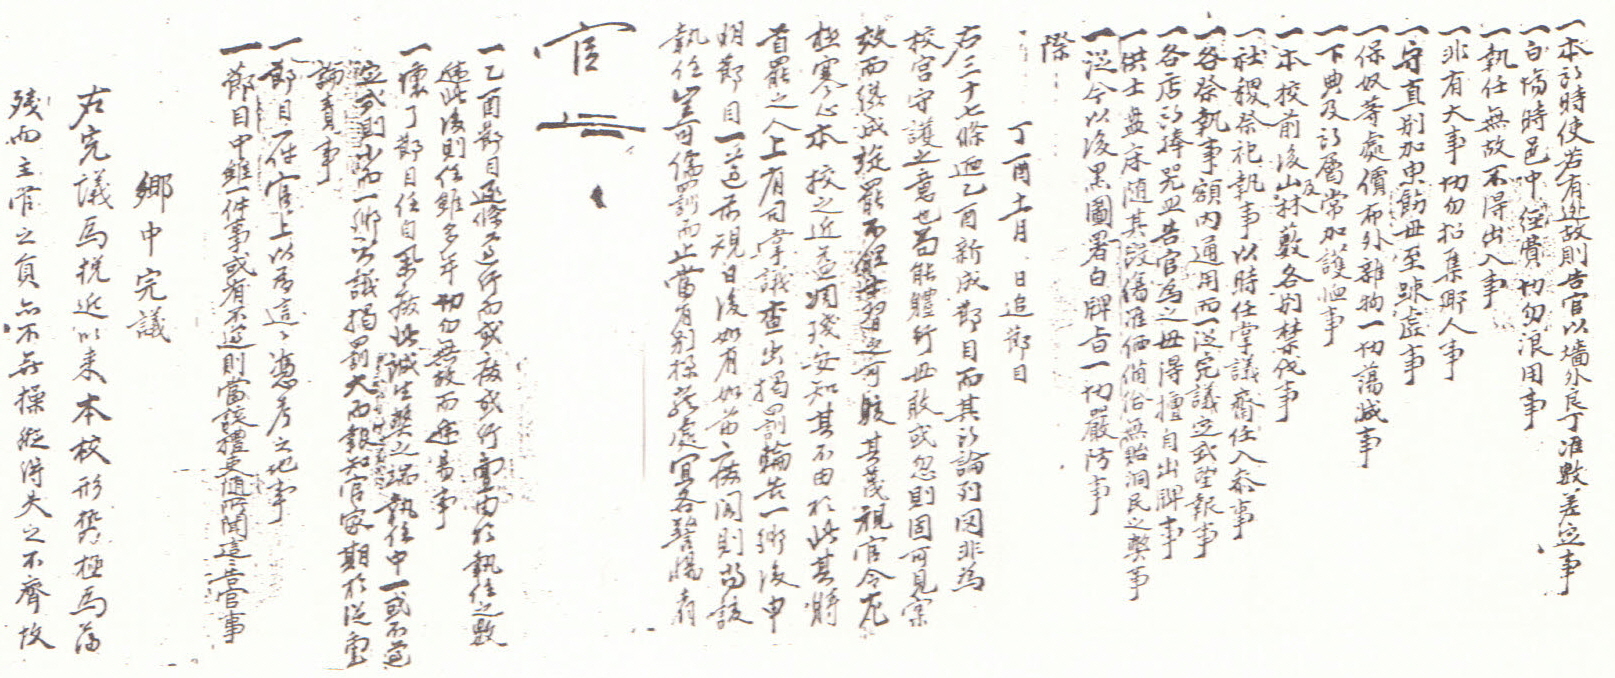 一本所時使若有逃故則告官以墻外良丁准數差定事
一白場時邑中經費切勿浪用事
一執任無故不得出入事
一非有大事切勿招集鄕人事
一守直別加申飭毋至踈虛事
一保奴等處價布外雜物一切蕩减事
一下典及所屬常加護恤事
一本校前後山及林藪各別禁伐事
一社稷祭祀執事以時任掌議齋任入叅事
一各祭執事額內通用而一從完議定式望報事
一各店所捧器皿告官爲之毋得擅自出牌事
一供士盤床隨其毁傷准価備給無貽洞民之弊事
一從今以後黑圖署白牌旨一切嚴防事
際
丁酉十一月 日追節目
右三十七條迺乙酉新成節目而其所論列因非爲
校宮守護之意也苟能體行毋敢或忽則固可見宗
效而纔成旋罷不經 可駭其蔑視官令尤
極寒心本校之近益凋殘安知其不由於此其時
首罷之人上有司掌議查出損罰輪告一鄕後申
明節目一遵示視日後如有如前廢閣則尚該
執任豈可儒罰而止當有別樣 處宜各警惕者
官
一乙酉節目逐條遵行而或廢或行亶由於執任之數
遞此後則任雖多年切勿無故而遞易事
一懷了節目任自 廢此誠生弊之端執任中一或不遵
定式則小而一鄕公議損罰大而報知官家期於從重
論責事
一節目一件官上以爲這這憑考之地事
一節目中雖一件事或有不遵則當該禮吏隨所聞這這告官事
鄕中完議
右完議爲挽近以來本校形勢極爲蕩
殘而主管之員亦不無操縱得失之不齊故